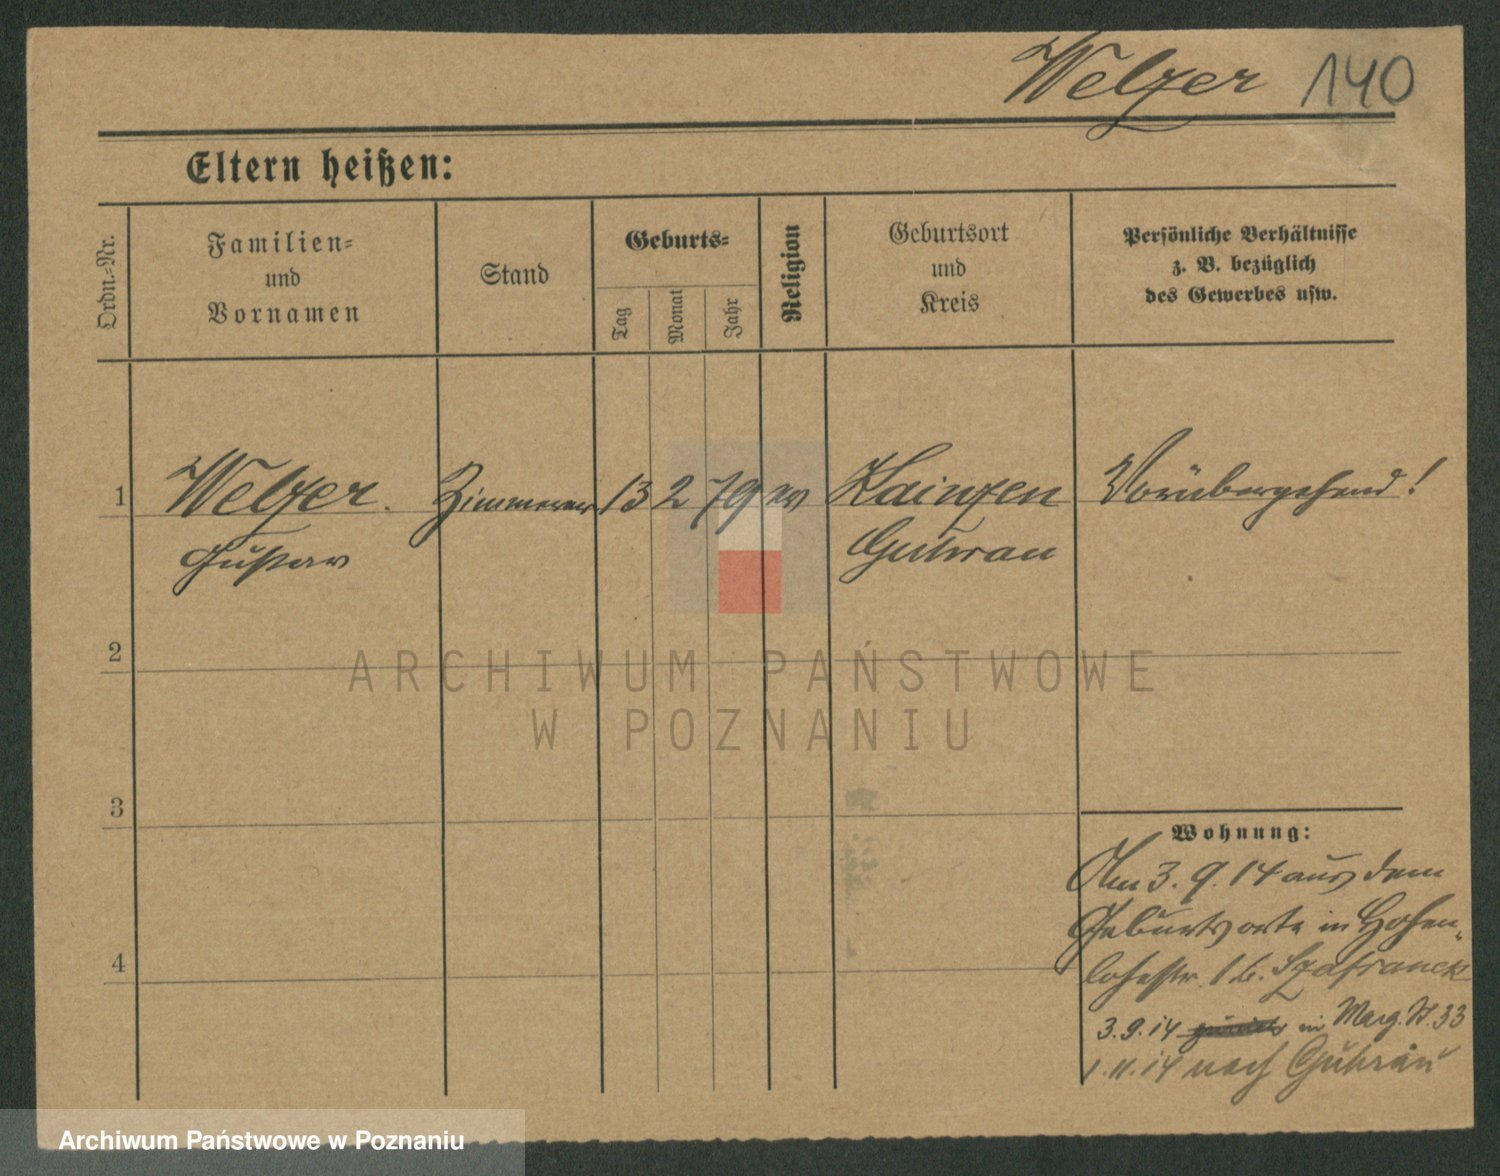 Welzer 140
Eltern heißen:
Ordn.-Nr.
Familien-
und
Vornamen
Stand
Geburts-
Tag
Monat
Jahr
Religion
Geburtsort
und
Kreis
Persönliche Verhältnisse
z. B. bezüglich
des Gewerbes usw.
1 Welzer. Zimmerer 13 2 79 ev Kainzen Vorübergehend!
Gustav Guhrau
2
3
4
Wohnung:
Am 3. 9. 14 aus dem
Geburtsorte in Hohen-
lohestr. 1 b. Szafranek
3.9.14 in Marg. St. 33
1.11.14 nach Guhrau
ARCHIWUM PAŃSTWOWE
W POZNANIU
Archiwum Państwowe w Poznaniu